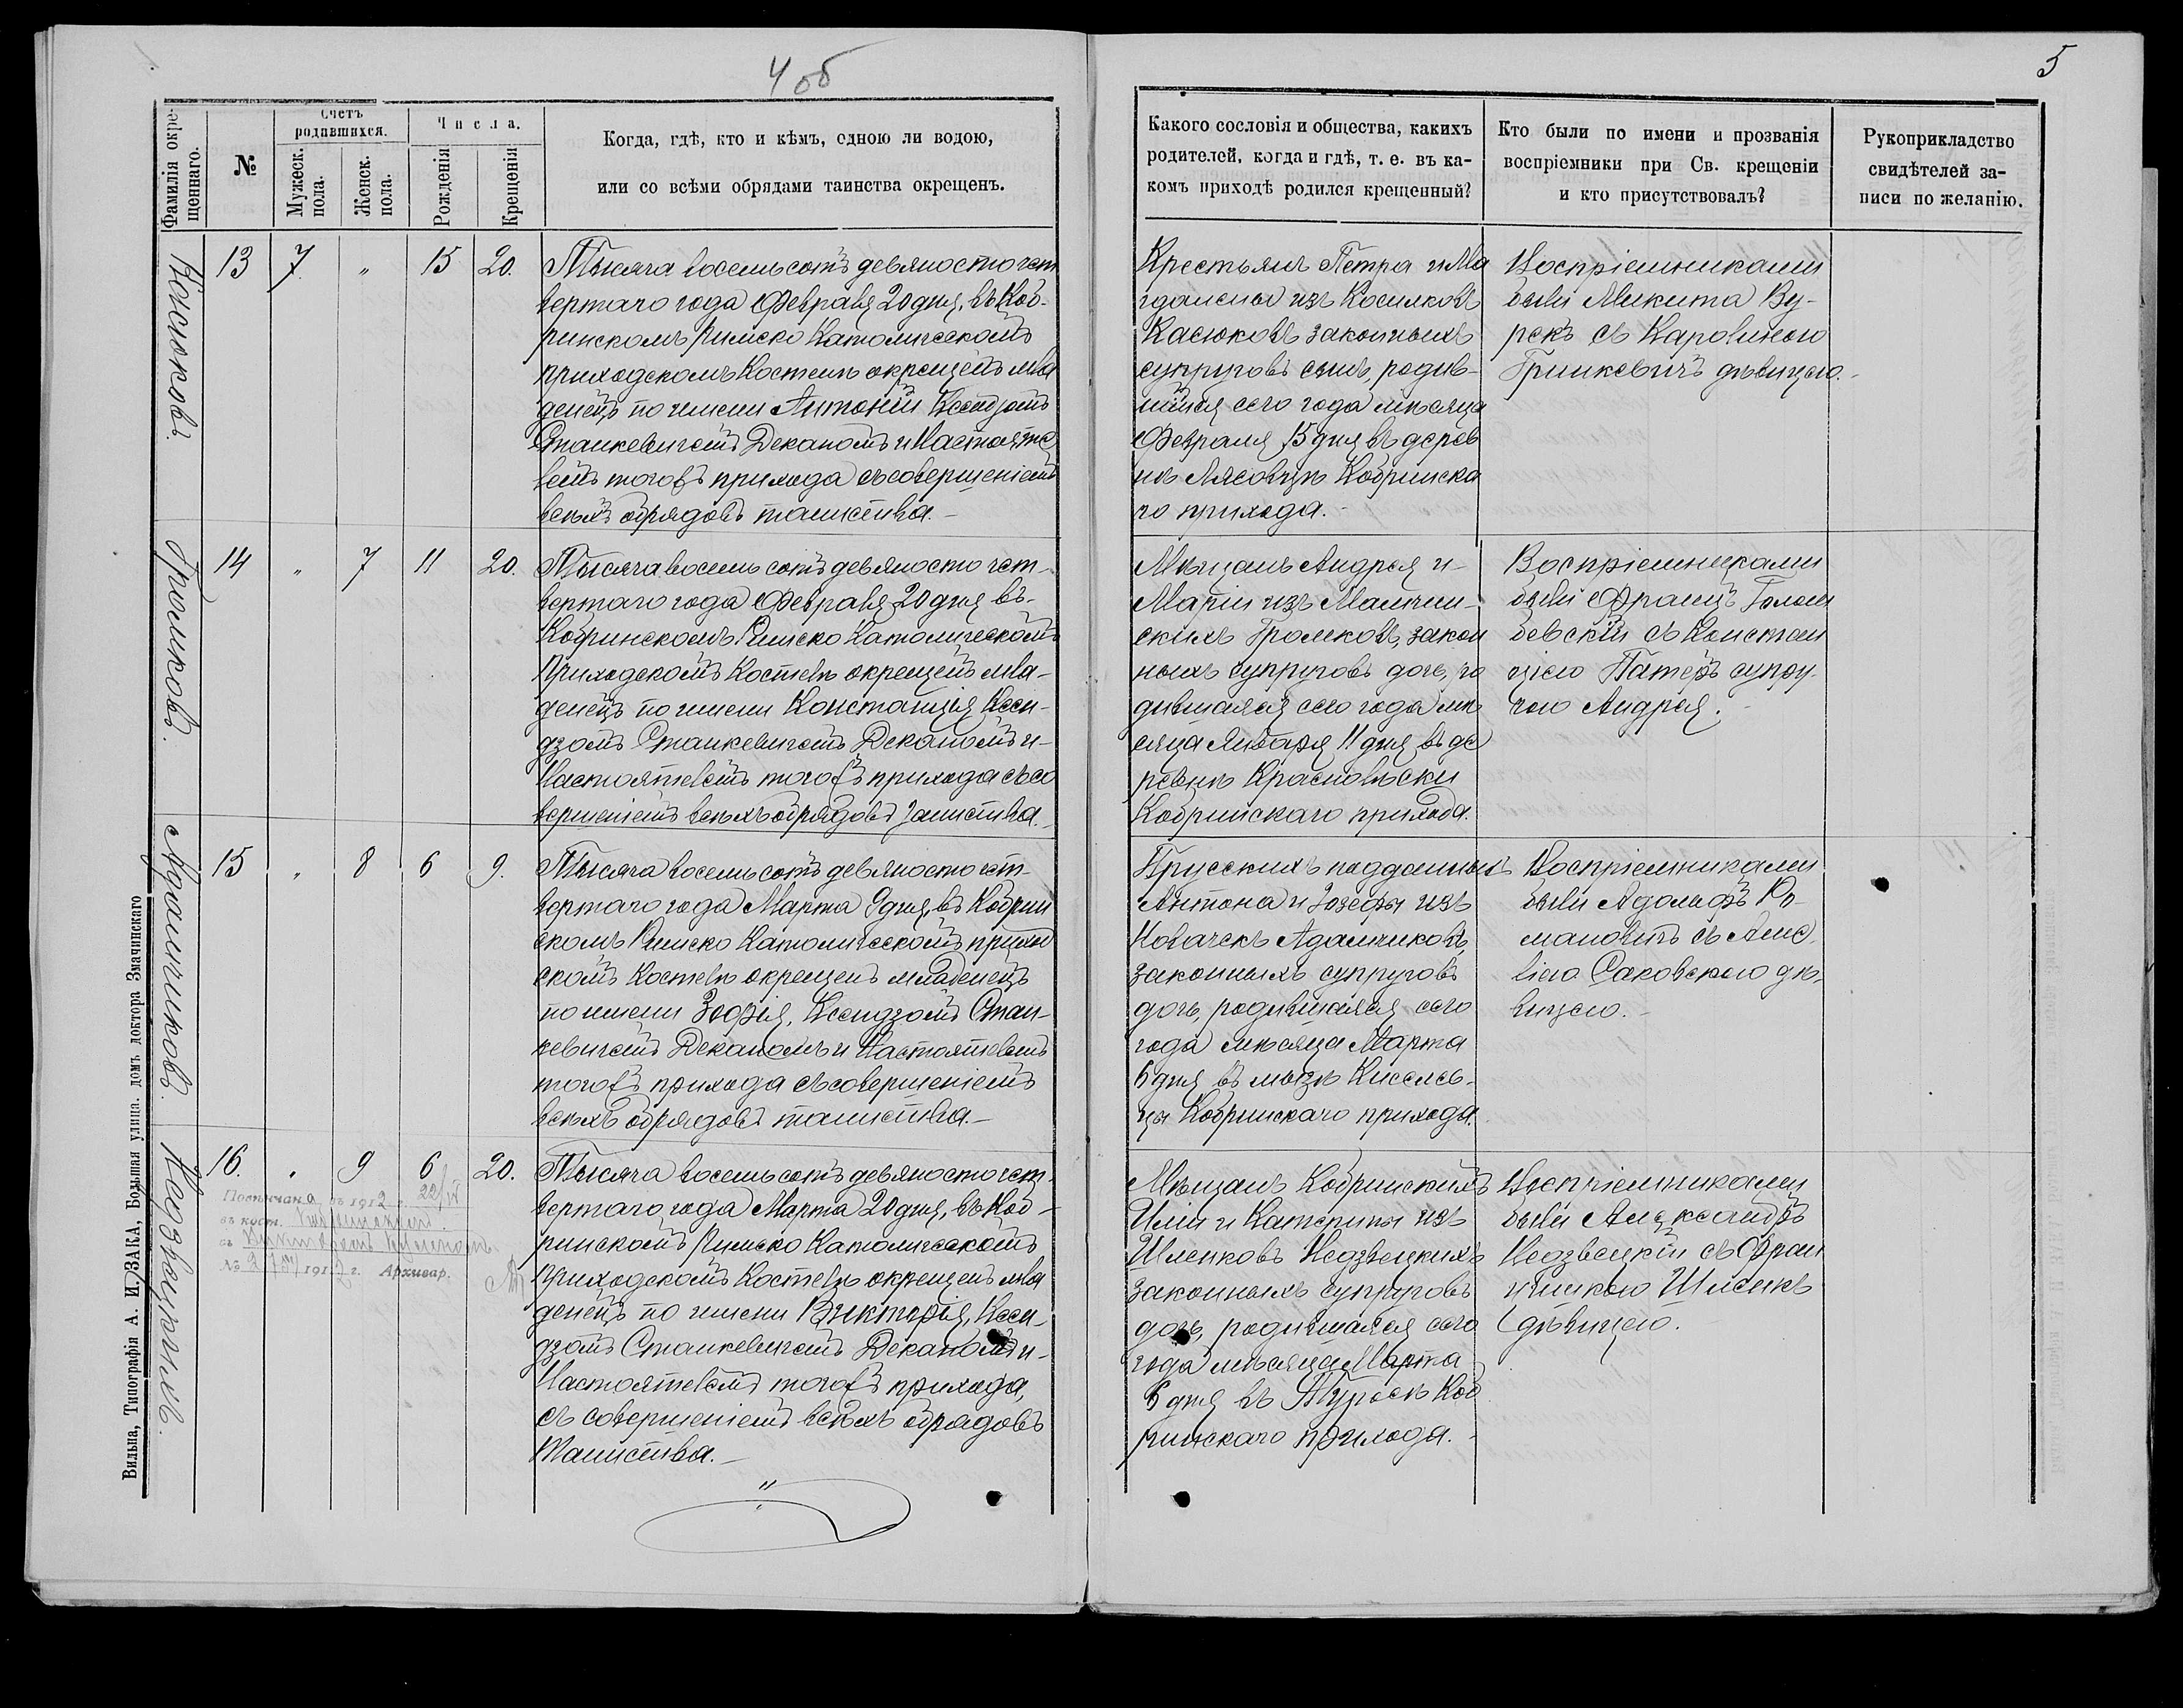 4 об
5
Фамилія окрещеннаго.
№
Счетъ родившихся.
Мужеск. пола.
Женск. пола.
Числа.
Рожденія
Крещенія
Когда, гдѣ, кто и кѣмъ, одною ли водою,
или со всѣми обрядами таинства окрещенъ.
Какого сословія и общества, какихъ
родителей, когда и гдѣ, т. е. въ ка-
комъ приходѣ родился крещенный?
Кто были по имени и прозванія
воспріемники при Св. крещеніи
и кто присутствовалъ?
Рукоприкладство
свидѣтелей за-
писи по желанію.
13 7 " 15 20.
Тысяча восемьсотъ девяносто чет
вертаго года Февраля 20 дня, въ Коб-
ринскомъ Римско Католическомъ
приходскомъ Костелѣ окрещенъ мла
денецъ по имени Антоній Ксендзомъ
Станкевичемъ Деканомъ и Настояте
лемъ тогожъ прихода съ совершеніемъ
всѣхъ обрядовъ таинства.-
Крестьянъ Петра и Ма
гдалены изъ
законныхъ
супруговъ сынъ, родив-
шійся сего года мѣсяца
Февраля 15 дня въ дерев
нѣ Лясовцѣ Кобринска
го прихода.-
Воспріемниками
были Микита Ву-
рекъ съ Каролиною
Гринкевичъ дѣвицею.-
Громковъ.
14 " 7 11 20.
Тысяча восемь сотъ девяносто чет-
вертаго года Февраля 20 дня въ-
Кобринскомъ Римско Католическомъ
Приходскомъ Костелѣ окрещенъ мла-
денецъ по имени Констанція Ксен-
дзомъ Станкевичемъ Деканомъ и-
Настоятелемъ тогожъ прихода съ со
вершеніемъ всѣхъ обрядовъ таинства.-
Мѣщанъ Андрея и-
Маріи изъ
скихъ Громковъ, закон
ныхъ супруговъ дочь, ро
дившаяся сего года мѣ
сяца Января 11 дня въ де
ревнѣ
Кобринскаго прихода.
Воспріемниками
были Францъ Голем
бевскій съ Констан
ціею Патеръ супру-
гою Андрея.-
Адамчиковъ.
15 " 8 6 9.
Тысяча восемь сотъ девяносто чет-
вертаго года Марта 9 дня, въ Кобрин
скомъ Римско Католическомъ приход
скомъ Костелѣ окрещенъ младенецъ
по имени Зофія, Ксендзомъ Стан-
кевичемъ Деканомъ и Настоятелемъ
тогожъ прихода съ совершеніемъ
всѣхъ обрядовъ таинства.-
Прусскихъ подданныхъ
Антона и Іозефы изъ
Новачекъ Адамчиковъ,
законныхъ супруговъ
дочь, родившаяся сего
года мѣсяца Марта
6 дня въ мызѣ Киселев-
цы Кобринскаго прихода.
Воспріемниками
были Адольфъ Ро-
мановичъ съ Аме-
ліею Саковскою дѣ-
вицею.-
Недзвецкихъ.
16. " 9 6 20.
Тысяча восемь сотъ девяносто чет-
вертаго года Марта 20 дня, въ Коб-
ринскомъ Римско Католическомъ
Приходскомъ Костелѣ окрещенъ мла
денецъ по имени Викторія, Ксен-
дзомъ Станкевичемъ Деканомъ и-
Настоятелемъ тогожъ прихода,
съ совершеніемъ всѣхъ обрядовъ
Таинства.-
Мѣщанъ Кобринскихъ
и Катерины изъ
Шленковъ Недзвецкихъ
законныхъ супруговъ
дочь, родившаяся сего
года мѣсяца Марта
6 дня въ Коб
ринскаго прихода.-
Воспріемниками
были Александръ
Недзвецкій съ Фран
цишкою Шленкъ
дѣвицею.
Повѣнчана въ 1912 г. 22/IV
въ кост.
съ
№ 191 г. Архивар.
Вильна, Типографія А. И. ЗАКА, Большая улица, домъ доктора Значинскаго